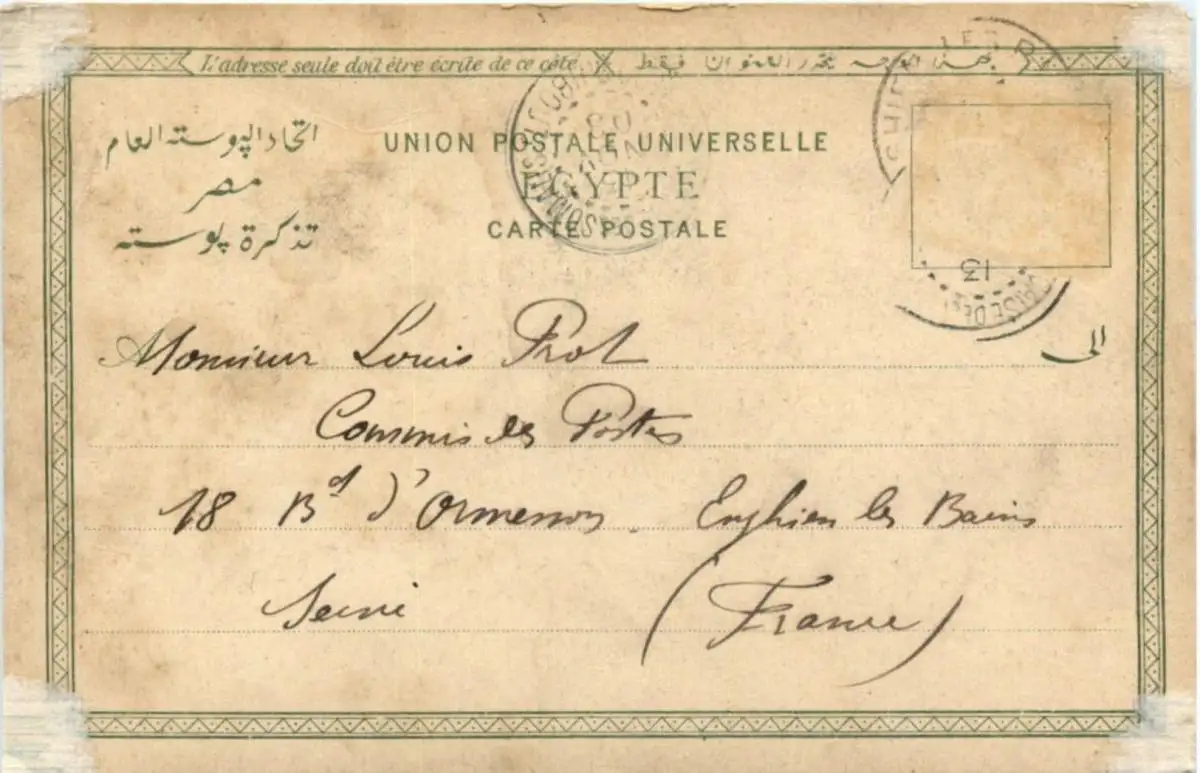 L'adresse seule doit être écrite de ce côté
اتحاد الپوسته العام
UNION POSTALE UNIVERSELLE
مصر
EGYPTE
تذكرة پوسته
CARTE POSTALE
13
الى
Monsieur Louis Prot
Commis des Postes
18 Bd d'Ormesson. Enghien les Bains
Seine
(France)